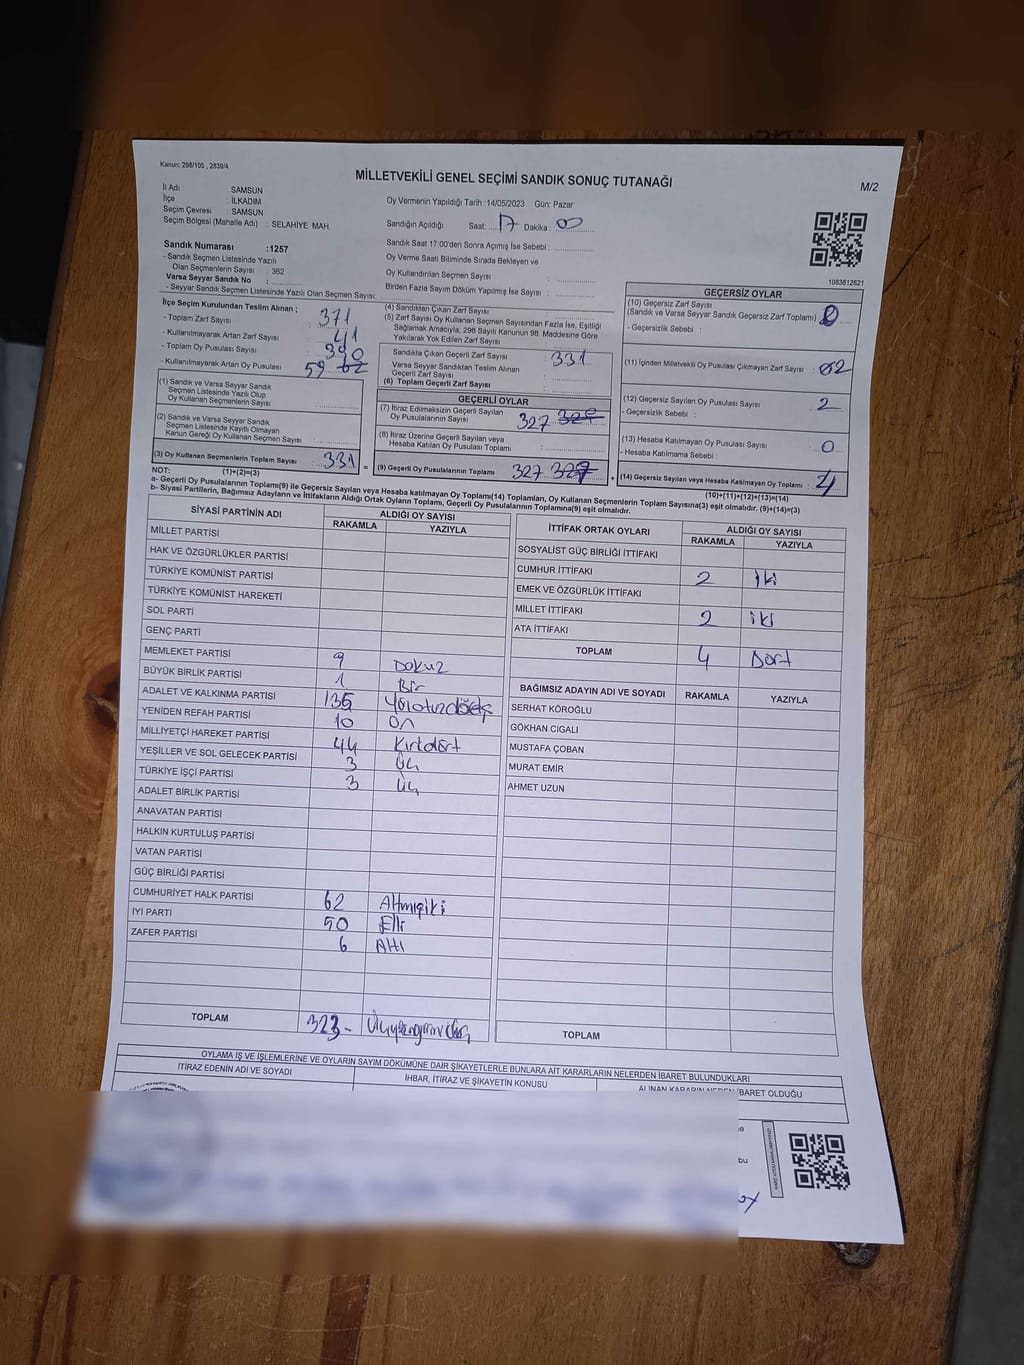 Kanun: 298/105 , 2839/4
MİLLETVEKİLİ GENEL SEÇİMİ SANDIK SONUÇ TUTANAĞI
M/2
İl Adı : SAMSUN
İlçe : İLKADIM
Seçim Çevresi : SAMSUN
Seçim Bölgesi (Mahalle Adı) : SELAHİYE MAH.
Oy Vermenin Yapıldığı Tarih :14/05/2023 Gün: Pazar
Sandığın Açıldığı Saat: 17 Dakika : 00
Sandık Numarası :1257
- Sandık Seçmen Listesinde Yazılı
Olan Seçmenlerin Sayısı : 362
Varsa Seyyar Sandık No :
- Seyyar Sandık Seçmen Listesinde Yazılı Olan Seçmen Sayısı:
Sandık Saat 17:00'den Sonra Açımış İse Sebebi :
Oy Verme Saati Bitiminde Sırada Bekleyen ve
Oy Kullandırılan Seçmen Sayısı :
Birden Fazla Sayım Döküm Yapılmış İse Sayısı :
1083612621
İlçe Seçim Kurulundan Teslim Alınan ;
- Toplam Zarf Sayısı : 371
- Kullanılmayarak Artan Zarf Sayısı : 41
- Toplam Oy Pusulası Sayısı : 390
- Kullanılmayarak Artan Oy Pusulası 59 62
(1) Sandık ve Varsa Seyyar Sandık
Seçmen Listesinde Yazılı Olup
Oy Kullanan Seçmenlerin Sayısı :
(2) Sandık ve Varsa Seyyar Sandık
Seçmen Listesinde Kayıtlı Olmayan
Kanun Gereği Oy Kullanan Seçmen Sayısı :
(3) Oy Kullanan Seçmenlerin Toplam Sayısı : 331
(1)+(2)=(3)
(4) Sandıktan Çıkan Zarf Sayısı :
(5) Zarf Sayısı Oy Kullanan Seçmen Sayısından Fazla İse, Eşitliği
Sağlamak Amacıyla; 298 Sayılı Kanunun 98. Maddesine Göre
Yakılarak Yok Edilen Zarf Sayısı :
Sandıkta Çıkan Geçerli Zarf Sayısı : 331
Varsa Seyyar Sandıktan Teslim Alınan
Geçerli Zarf Sayısı :
(6) Toplam Geçerli Zarf Sayısı :
GEÇERLİ OYLAR
(7) İtiraz Edilmeksizin Geçerli Sayılan
Oy Pusulalarının Sayısı : 327
(8) İtiraz Üzerine Geçerli Sayılan veya
Hesaba Katılan Oy Pusulası Toplamı :
(9) Geçerli Oy Pusulalarının Toplamı : 327 327
GEÇERSİZ OYLAR
(10) Geçersiz Zarf Sayısı
(Sandık ve Varsa Seyyar Sandık Geçersiz Zarf Toplamı) : 0
- Geçersizlik Sebebi :
(11) İçinden Milletvekili Oy Pusulası Çıkmayan Zarf Sayısı : 02
(12) Geçersiz Sayılan Oy Pusulası Sayısı : 2
- Geçersizlik Sebebi :
(13) Hesaba Katılmayan Oy Pusulası Sayısı : 0
- Hesaba Katılmama Sebebi :
(14) Geçersiz Sayılan veya Hesaba Katılmayan Oy Toplamı : 4
(10)+(11)+(12)+(13)=(14)
NOT:
a- Geçerli Oy Pusulalarının Toplamı(9) ile Geçersiz Sayılan veya Hesaba katılmayan Oy Toplamı(14) Toplamları, Oy Kullanan Seçmenlerin Toplam Sayısına(3) eşit olmalıdır. (9)+(14)=(3)
b- Siyasi Partilerin, Bağımsız Adayların ve İttifakların Aldığı Ortak Oyların Toplamı, Geçerli Oy Pusulalarının Toplamına(9) eşit olmalıdır.
SİYASİ PARTİNİN ADI ALDIĞI OY SAYISI
RAKAMLA YAZIYLA
MİLLET PARTİSİ
HAK VE ÖZGÜRLÜKLER PARTİSİ
TÜRKİYE KOMÜNİST PARTİSİ
TÜRKİYE KOMÜNİST HAREKETİ
SOL PARTİ
GENÇ PARTİ
MEMLEKET PARTİSİ 9 Dokuz
BÜYÜK BİRLİK PARTİSİ 1 Bir
ADALET VE KALKINMA PARTİSİ 135
YENİDEN REFAH PARTİSİ 10 On
MİLLİYETÇİ HAREKET PARTİSİ 44 Kırkdört
YEŞİLLER VE SOL GELECEK PARTİSİ 3 Üç
TÜRKİYE İŞÇİ PARTİSİ 3 Üç
ADALET BİRLİK PARTİSİ
ANAVATAN PARTİSİ
HALKIN KURTULUŞ PARTİSİ
VATAN PARTİSİ
GÜÇ BİRLİĞİ PARTİSİ
CUMHURİYET HALK PARTİSİ 62 Atmışiki
İYİ PARTİ 50 Elli
ZAFER PARTİSİ 6 Altı
TOPLAM 323-
İTTİFAK ORTAK OYLARI ALDIĞI OY SAYISI
RAKAMLA YAZIYLA
SOSYALİST GÜÇ BİRLİĞİ İTTİFAKI
CUMHUR İTTİFAKI 2 iki
EMEK VE ÖZGÜRLÜK İTTİFAKI
MİLLET İTTİFAKI 2 iki
ATA İTTİFAKI
TOPLAM 4 Dört
BAĞIMSIZ ADAYIN ADI VE SOYADI RAKAMLA YAZIYLA
SERHAT KÖROĞLU
GÖKHAN CIGALI
MUSTAFA ÇOBAN
MURAT EMİR
AHMET UZUN
TOPLAM
OYLAMA İŞ VE İŞLEMLERİNE VE OYLARIN SAYIM DÖKÜMÜNE DAİR ŞİKAYETLERLE BUNLARA AİT KARARLARIN NELERDEN İBARET BULUNDUKLARI
İTİRAZ EDENİN ADI VE SOYADI
İHBAR, İTİRAZ VE ŞİKAYETİN KONUSU
ALINAN KARARIN NEDEN İBARET OLDUĞU